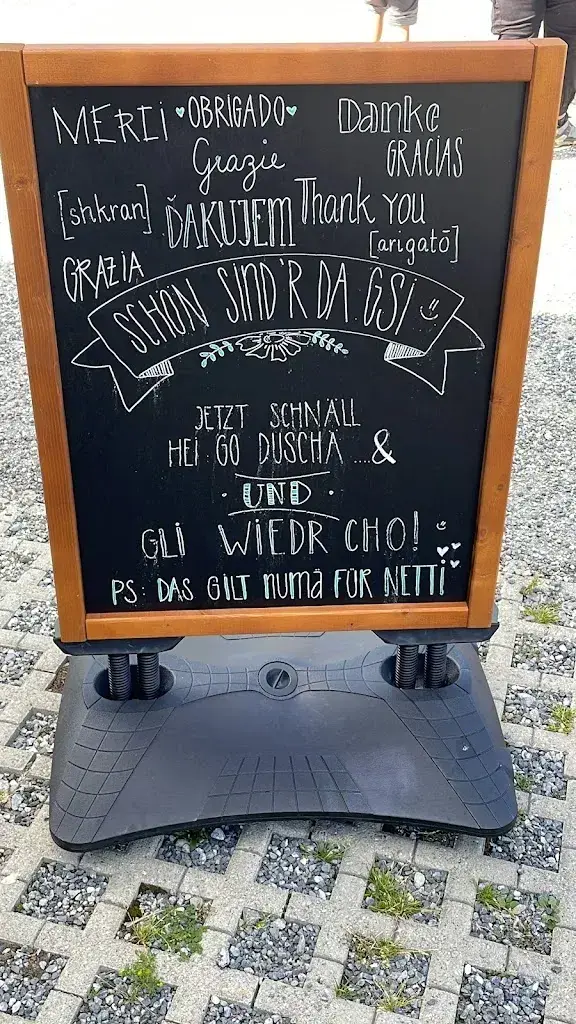 MERCi ♥OBRIGADO♥ Danke
Grazie GRACIAS
[shkran] ĎAKUJEM Thank you
[arigatō]
GRAZIA
SCHÖN SIND'R DA GSI
JETZT SCHNÄLL
HEI GO DUSCHA ....&
· UND ·
GLI WIEDR CHO!
PS: DAS GILT numä FÜR NETTI